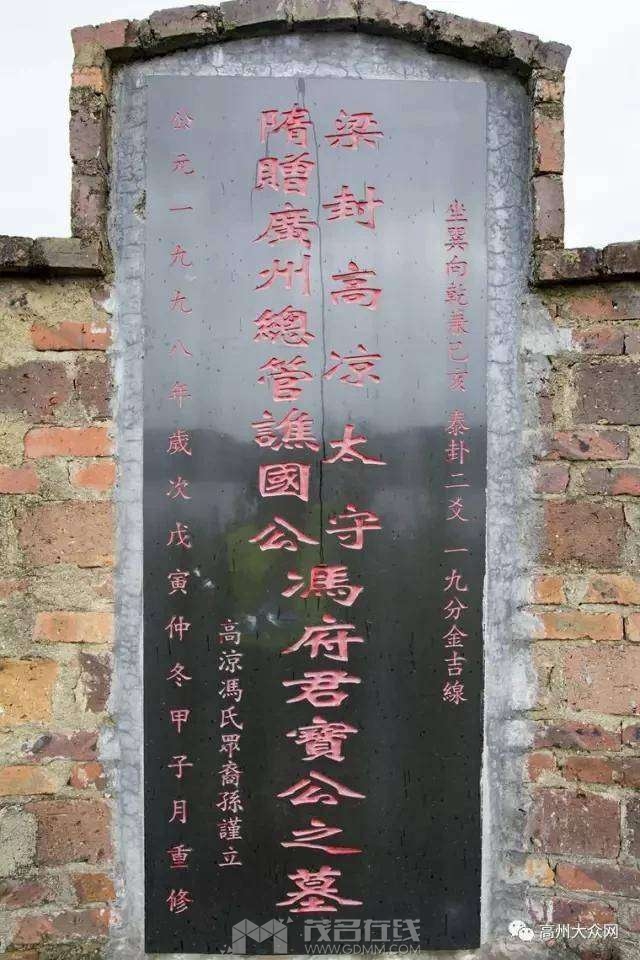 坐巽向乾兼巳亥 泰卦二爻 一九分金吉線
梁封高凉太守
隋贈廣州總管譙國公
馮府君寶公之墓
高涼馮氏眾裔孫謹立
公元一九九八年歲次戊寅仲冬甲子月重修
茂名在线
WWW.GDMM.COM
高州大众网